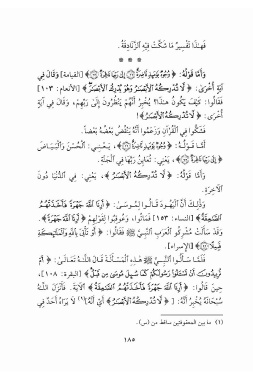 فَهَذَا تَفْسِيرُ مَا شَكَّتْ فِيْهِ الزَّنَادِقَةُ.
* * *
وَأَمَّا قَوْلُهُ: ﴿ وُجُوهٌ يَوْمَئِذٍ نَّاضِرَةٌ ۝ إِلَىٰ رَبِّهَا نَاظِرَةٌ ۝ ﴾ [القيامة] وَقَالَ فِي
آيَةٍ أُخْرَىٰ: ﴿ لَّا تُدْرِكُهُ الْأَبْصَٰرُ وَهُوَ يُدْرِكُ الْأَبْصَٰرَ ﴾ [الأنعام: ١٠٣]
فَقَالُوا: كَيْفَ يَكُونُ هَذَا؟ يُخْبِرُ أَنَّهُمْ يَنْظُرُونَ إِلَىٰ رَبِّهِمْ، وَقَالَ فِي آيَةٍ
أُخْرَىٰ: ﴿ لَّا تُدْرِكُهُ الْأَبْصَٰرُ ﴾!
فَشَكُّوا فِي الْقُرْآنِ وَزَعَمُوا أَنَّهُ يَنْقُضُ بَعْضُهُ بَعْضاً.
أَمَّا قَوْلُهُ: ﴿ وُجُوهٌ يَوْمَئِذٍ نَّاضِرَةٌ ۝ ﴾، يَعْنِي: الْحُسْنَ وَالْبَيَاضَ
﴿ إِلَىٰ رَبِّهَا نَاظِرَةٌ ۝ ﴾، يَعْنِي: تُعَايِنُ رَبَّهَا فِي الْجَنَّةِ.
وَأَمَّا قَوْلُهُ: ﴿ لَّا تُدْرِكُهُ الْأَبْصَٰرُ ﴾، يَعْنِي: فِي الدُّنْيَا دُونَ
الْآخِرَةِ.
وَذَلِكَ أَنَّ الْيَهُودَ قَالُوا لِمُوسَىٰ: ﴿ أَرِنَا اللَّهَ جَهْرَةً فَأَخَذَتْهُمُ
الصَّٰعِقَةُ ﴾ [النساء: ١٥٣] فَمَاتُوا، وَعُوقِبُوا لِقَوْلِهِمْ ﴿ أَرِنَا اللَّهَ جَهْرَةً ﴾.
وَقَدْ سَأَلَتْ مُشْرِكُو الْعَرَبِ النَّبِيَّ ﷺ فَقَالُوا: ﴿ أَوْ تَأْتِيَ بِاللَّهِ وَالْمَلَٰئِكَةِ
قَبِيلًا ۝ ﴾ [الإسراء].
فَلَمَّا سَأَلُوا النَّبِيَّ ﷺ هَذِهِ الْمَسْأَلَةَ قَالَ اللَّهُ تَعَالَىٰ: ﴿ أَمْ
تُرِيدُونَ أَن تَسْـَٔلُوا رَسُولَكُمْ كَمَا سُئِلَ مُوسَىٰ مِن قَبْلُ ﴾ [البقرة: ١٠٨]،
حِينَ قَالُوا: ﴿ أَرِنَا اللَّهَ جَهْرَةً فَأَخَذَتْهُمُ الصَّٰعِقَةُ ﴾ الْآيَةَ. فَأَنْزَلَ اللَّهُ
سُبْحَانَهُ يُخْبِرُ أَنَّهُ: [ ﴿ لَّا تُدْرِكُهُ الْأَبْصَٰرُ ﴾ أَيْ أَنَّهُ](١) لَا يَرَاهُ أَحَدٌ فِي
(١) ما بين المعقوفتين ساقط من (س).
١٨٥